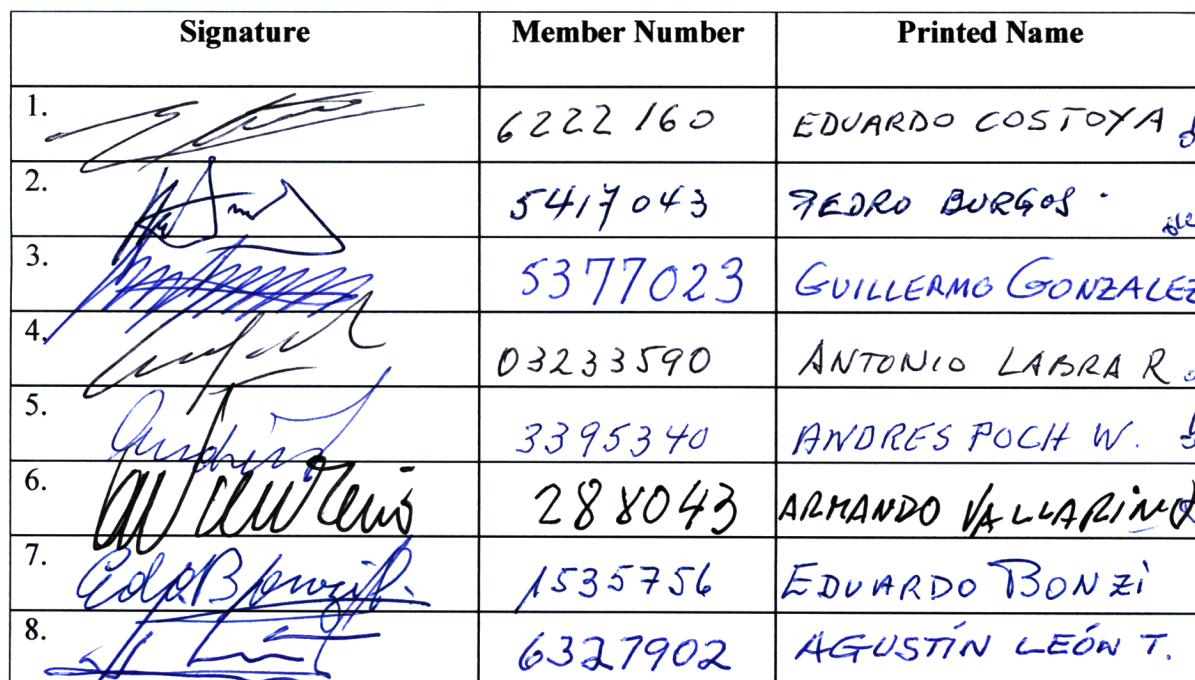 Signature Member Number Printed Name
1. 6222160 EDUARDO COSTOYA
2. 5417043 PEDRO BURGOS
3. 5377023 GUILLERMO GONZALEZ
4. 03233590 ANTONIO LABRA R
5. Andrés 3395340 ANDRES POCH W.
6. 288043 ARMANDO VALLARINO
7. 1535756 EDUARDO BONZI
8. 6327902 AGUSTÍN LEÓN T.